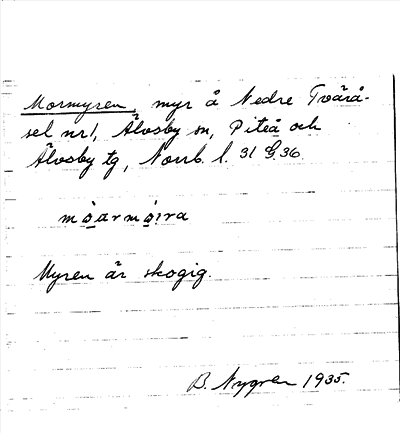 Mormyren, myr å Nedre Tvärå-
sel nr 1, Älvsby sn, Piteå och
Älvsby tg, Norrb. l. 31 G. 36.
Myren är skogig.
B. Nygren 1935.